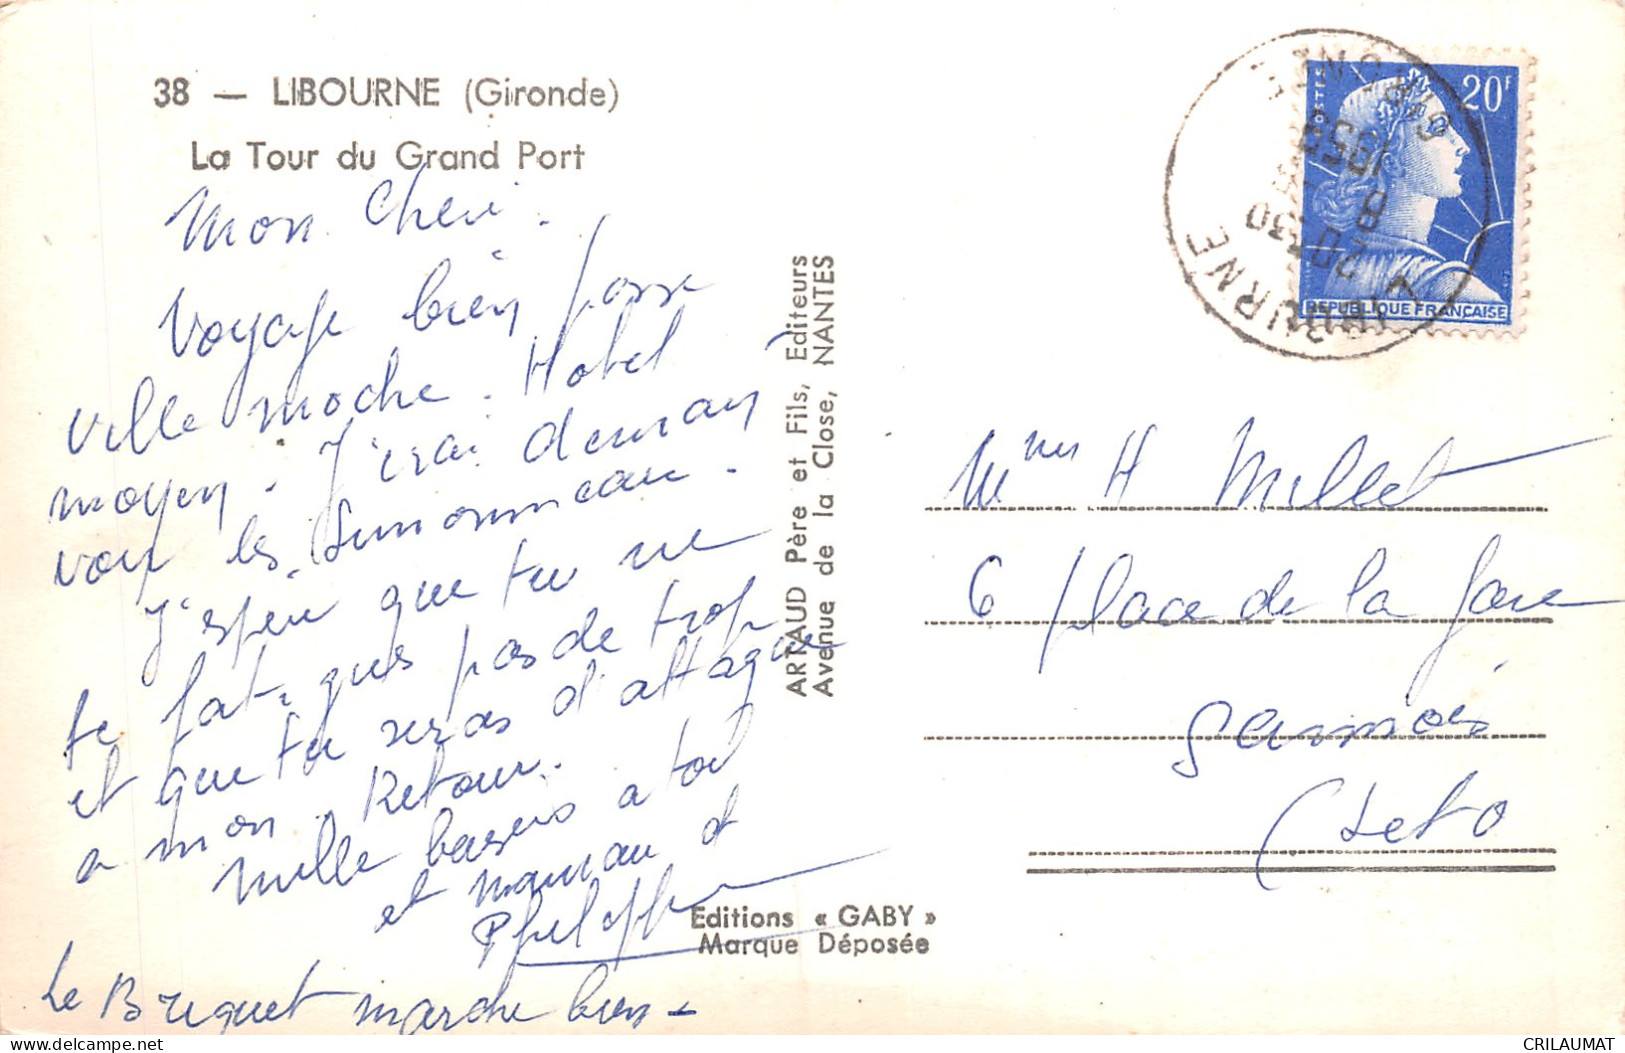 38 — LIBOURNE (Gironde)
La Tour du Grand Port
Mon Cheri.
Voyage bien passé
Ville moche. Hotel
moyen. J'irai demain
voir les Simonneau.
J'espère que tu ne
te fatigues pas de trop
et que tu seras d'attaque
a mon Retour.
Mille basers a toi
et maman et
Philippe
Le Briquet marche bien -
ARTAUD Père et Fils, Editeurs
Avenue de la Close, NANTES
Editions « GABY »
Marque Déposée
20F
POSTES
REPUBLIQUE FRANÇAISE
LIBOURNE
GIRONDE
20H30
8
195
Mme H Millet
6 place de la Gare
Sannois
(Seto
CRILAUMAT